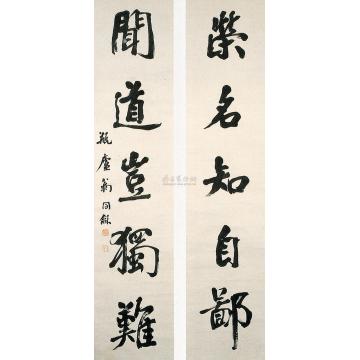 榮名知自鄙
聞道豈獨難
瓶廬翁同龢